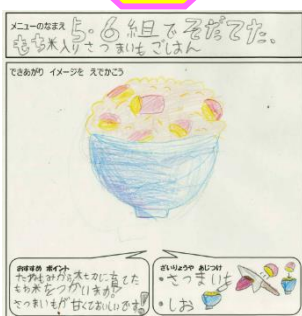 メニューのなまえ
5・6組でそだてた
もち米入りさつまいもごはん
できあがり イメージを えでかこう
おすすめ ポイント
もち米をつかいます。
さつまいもが甘くておいしいです!
ざいりょうや あじつけ
・さつまいも
・しお